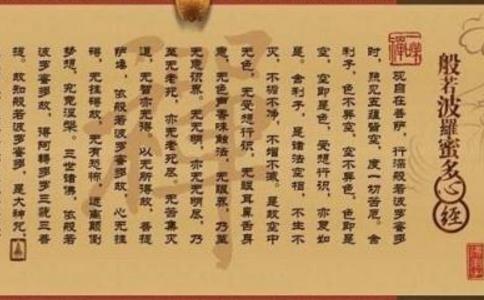 般若波羅蜜多心經
观自在菩萨，行深般若波罗蜜多
时，照见五蕴皆空，度一切苦厄。舍
利子，色不异空，空不异色。色即是
空，空即是色，受想行识，亦复如
是。舍利子，是诸法空相，不生不
灭，不垢不净，不增不减。是故空中
无色，无受想行识，无眼耳鼻舌身
意，无色声香味触法，无眼界，乃至
无意识界。无无明，亦无无明尽，乃
至无老死，亦无老死尽，无苦集灭
道，无智亦无得。以无所得故，菩提
萨埵，依般若波罗蜜多故，心无挂
碍，无挂碍故，无有恐怖，远离颠倒
梦想，究竟涅槃。三世诸佛，依般若
波罗蜜多故，得阿耨多罗三藐三菩
提。故知般若波罗蜜多，是大神咒，
禪